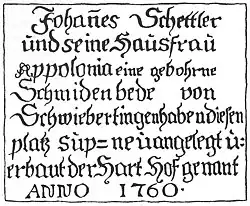 Johan̄es Schettler
und seine Hausfrau
Appolonia eine gebohrne
Schmidenbede von
Schwiebertingen haben diesen
platz sup= neü angelegt ü:
erbaut der Hart Hof genant
ANNO 1760.